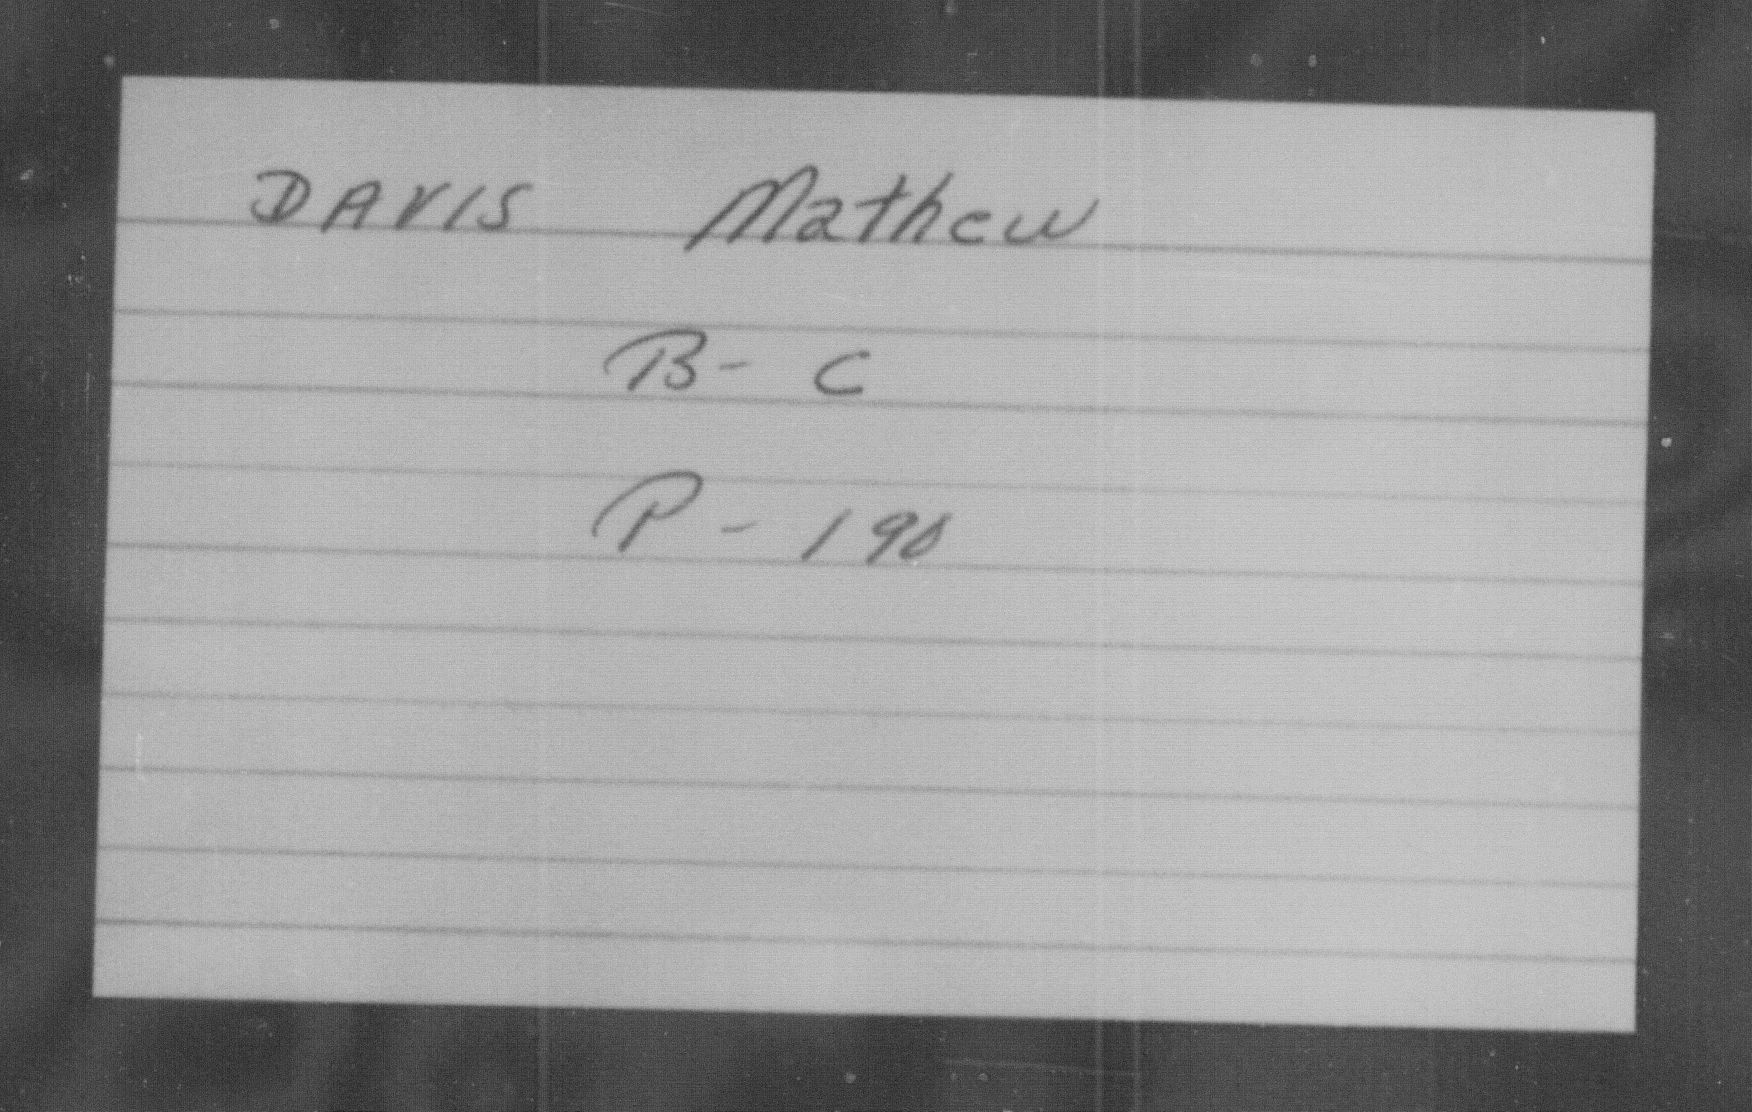 DAVIS Mathew
B- C
P- 190